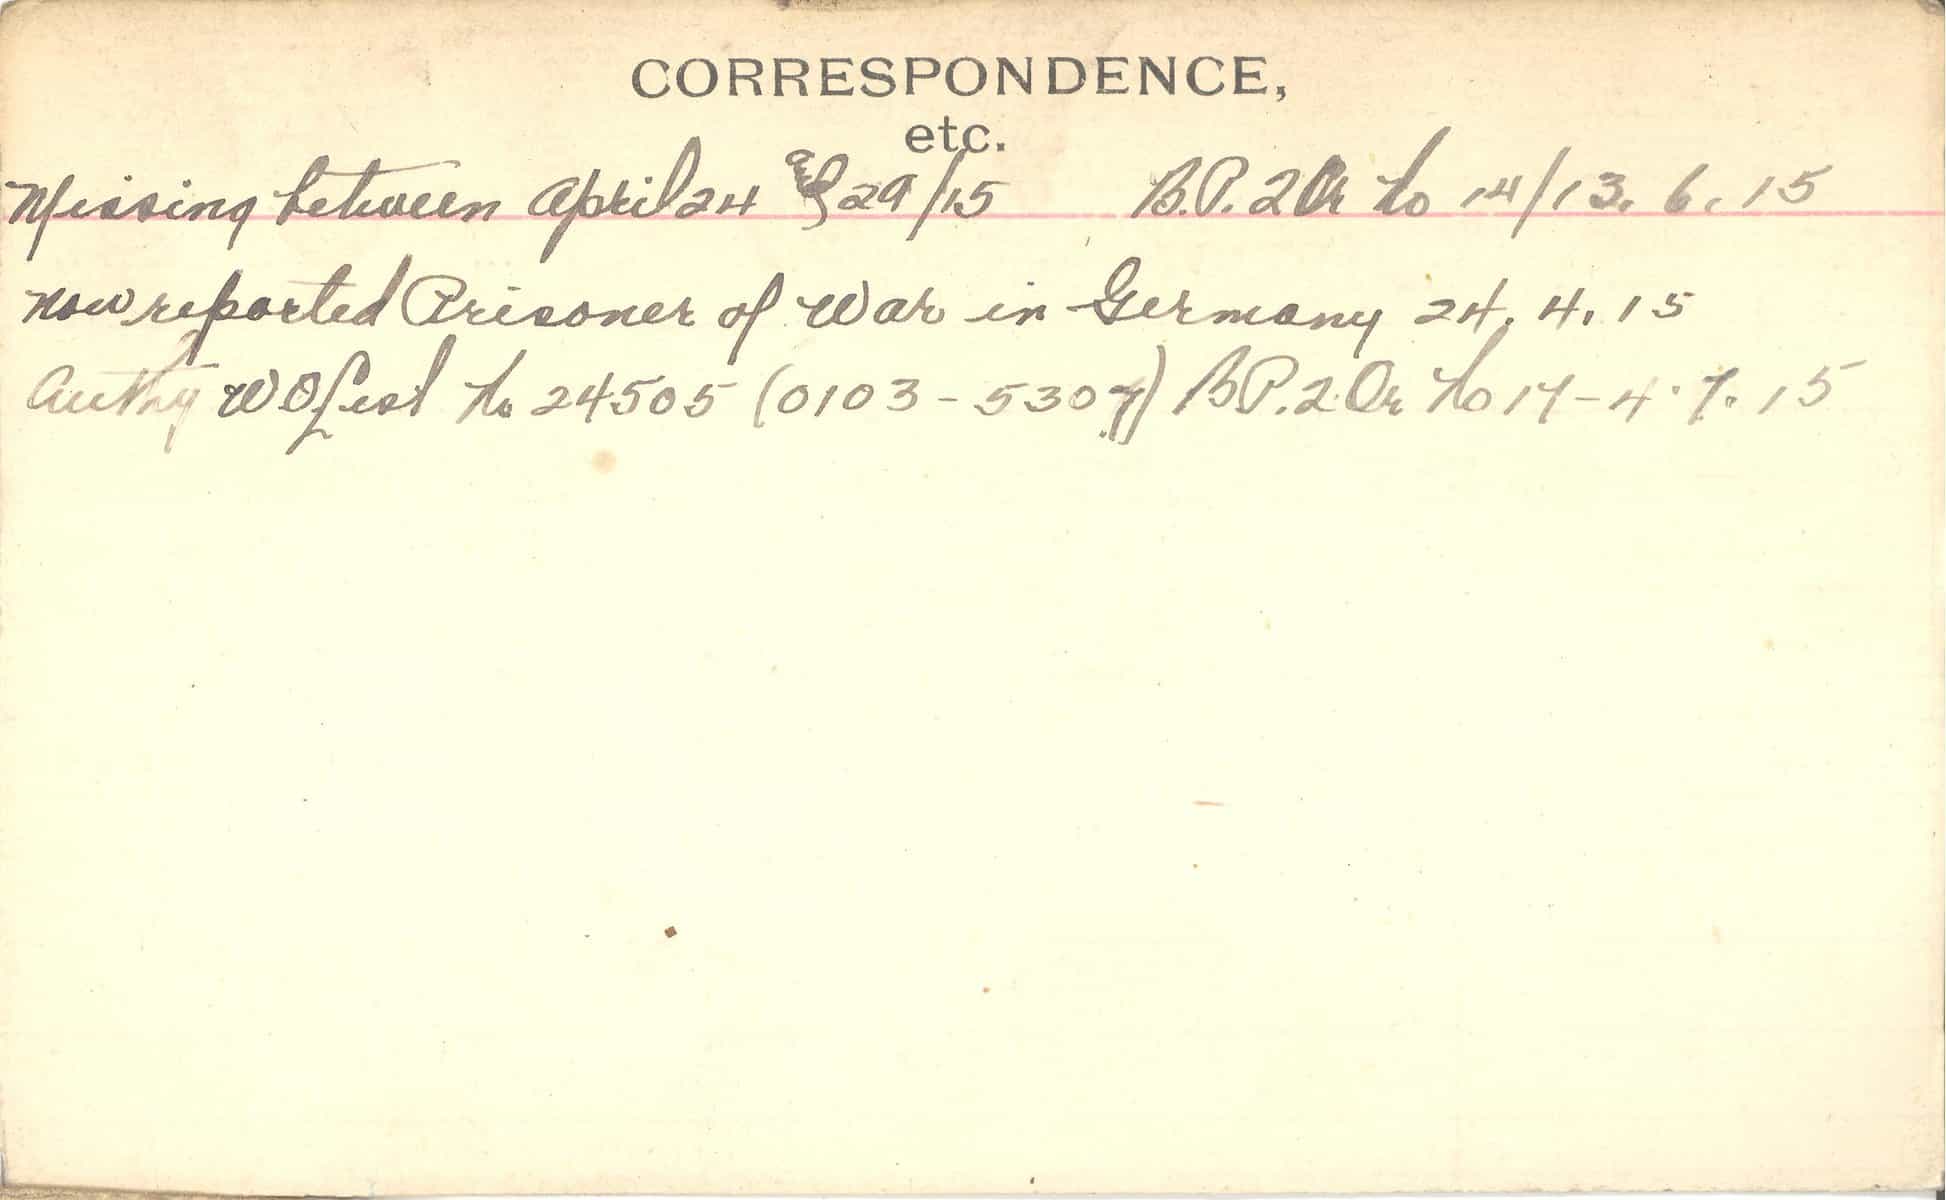 CORRESPONDENCE,
etc.
Missing between April 24 and 29/15 B.P. 2 Or No 14/13.6.15
Now reported Prisoner of War in Germany 24.4.15
Authy W O List No 24505 (0103-5307) B.P. 2 Or No 17-4.7.15